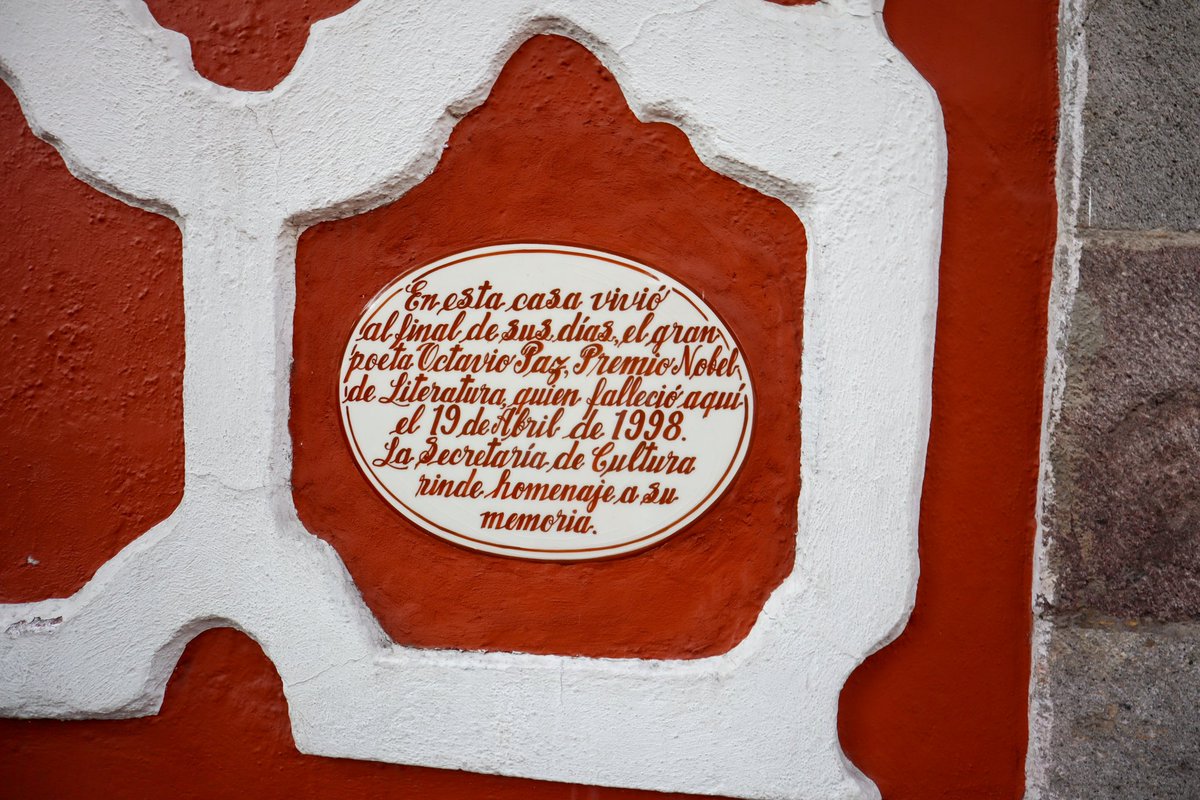 En esta casa vivió
al final de sus días, el gran
poeta Octavio Paz, Premio Nobel
de Literatura, quien falleció aquí
el 19 de Abril de 1998.
La Secretaría de Cultura
rinde homenaje a su
memoria.